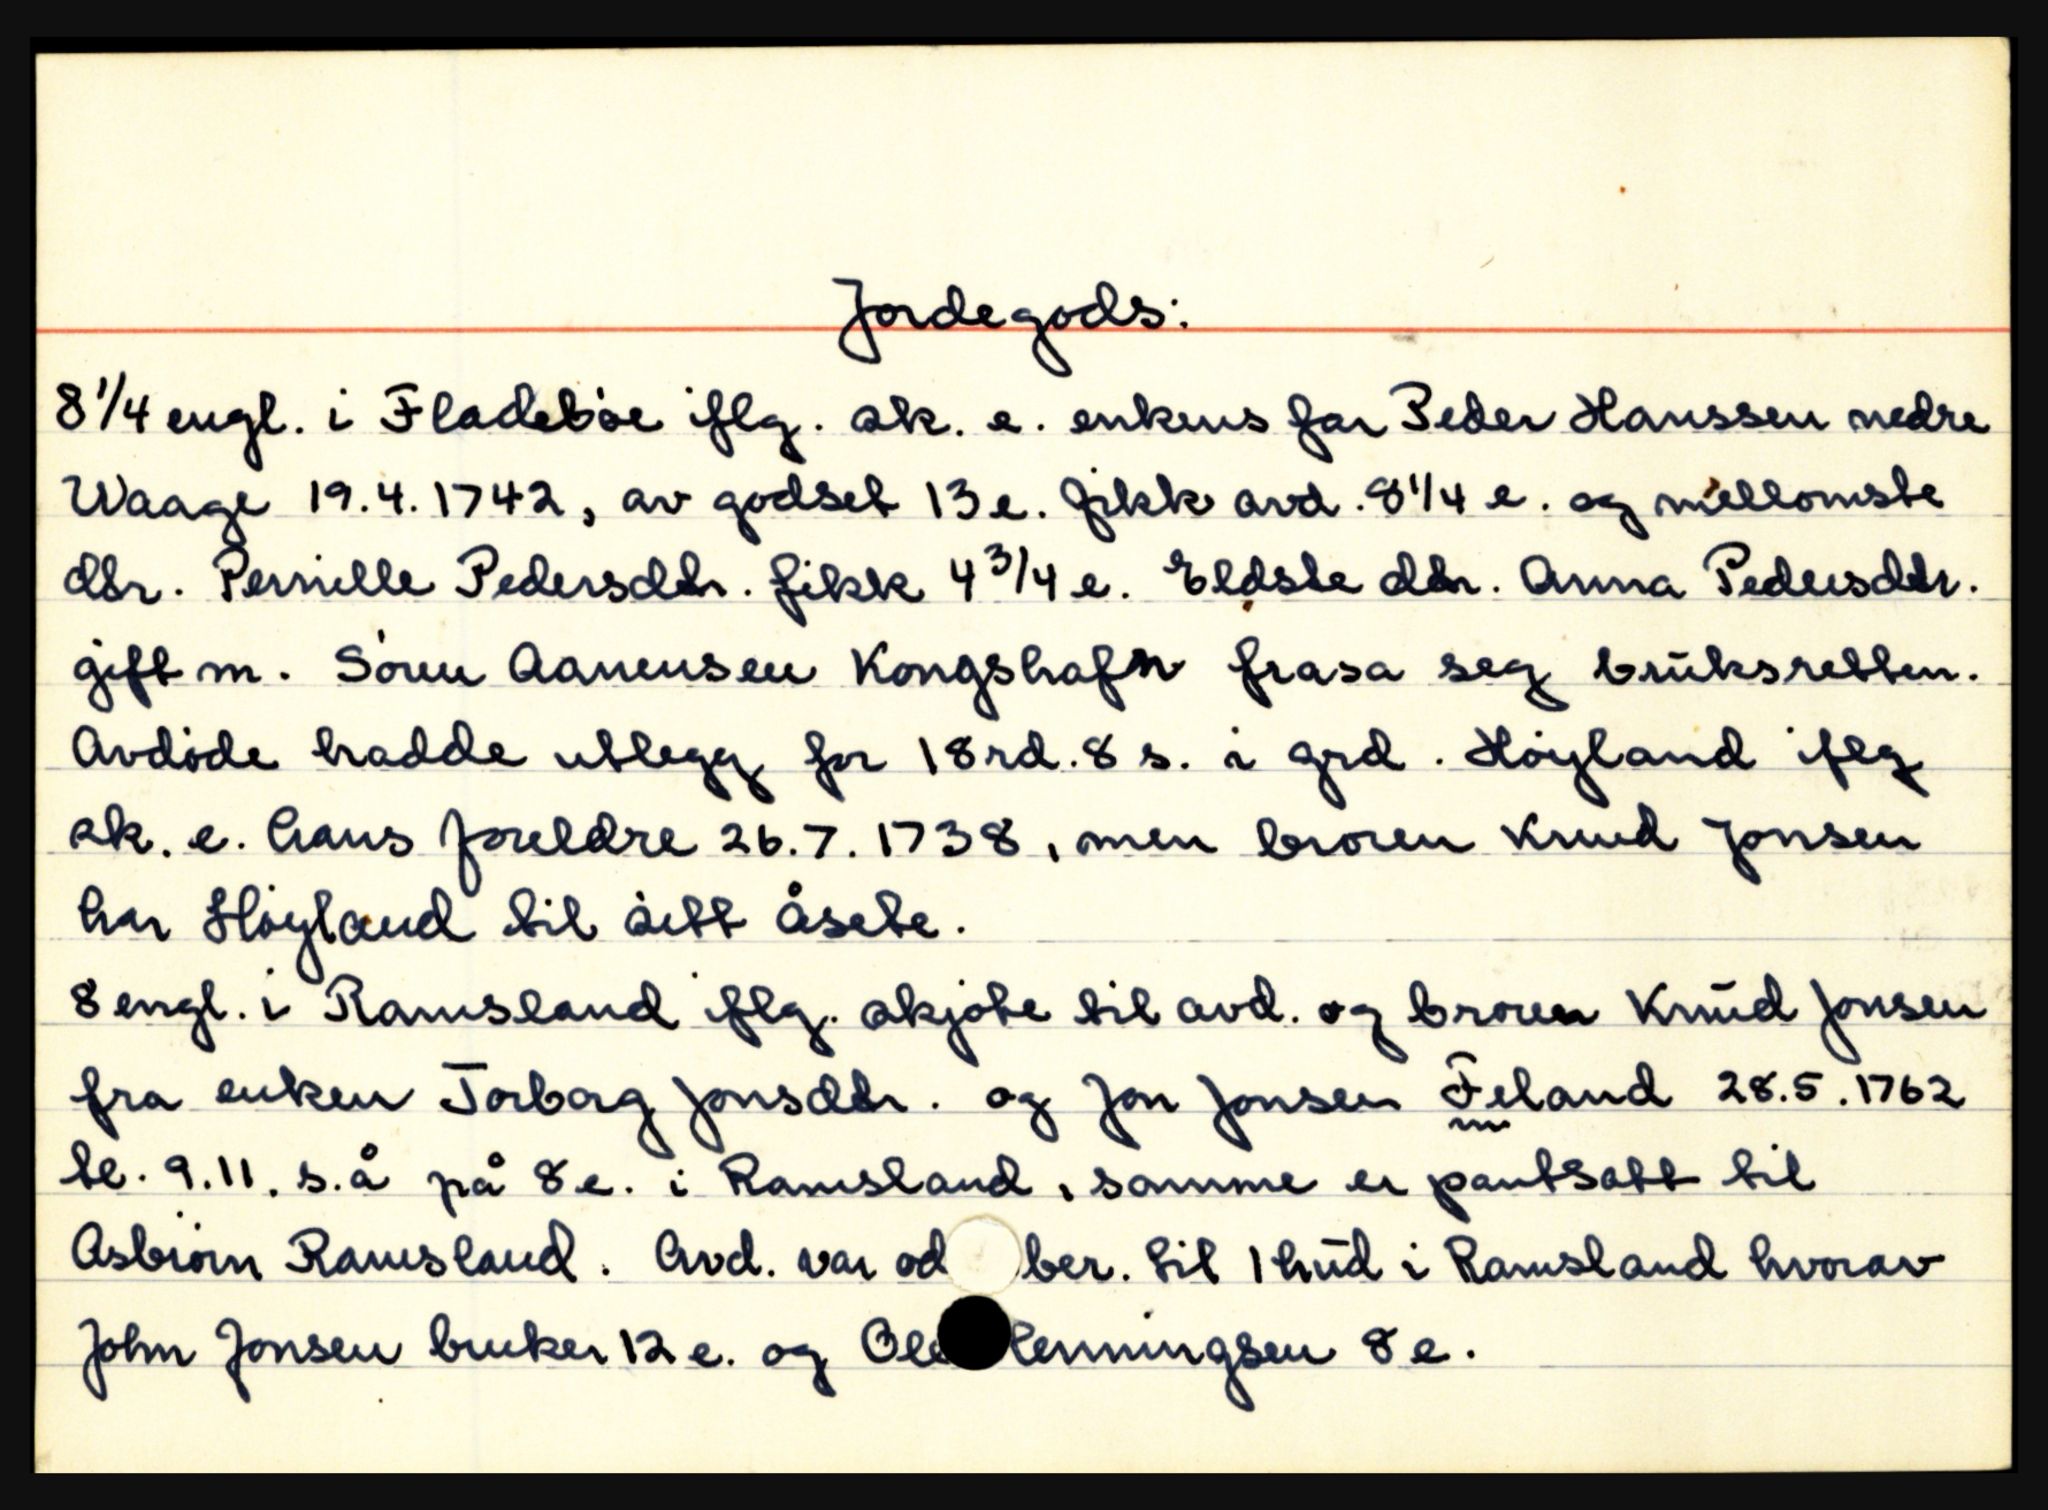 Jordegods:
8 1/4 engl. i Fladebøe iflg. sk. e. enkens far Peder Hanssen nedre
Waage 19.4.1742, av godset 13 e. fikk avd. 8 1/4 e. og mellomste
dtr. Pernille Pedersdtr. fikk 4 3/4 e. Eldste dtr. Anna Pedersdtr.
gift m. Søren Aanensen Kongshafn frasa seg bruksretten.
Avdøde hadde utlegg for 18 rd. 8 s. i grd. Høyland iflg
sk. e. hans foreldre 26.7.1738, men broren Knud Jonsen
har Høyland til sitt åsete.
8 engl. i Ramsland iflg. skjøte til avd. og broren Knud Jonsen
fra enken Torborg Jonsdtr. og Jon Jonsen Feland 28.5.1762
tl. 9.11. s.å på 8 e. i Ramsland, samme er pantsatt til
Asbiørn Ramsland. Avd. var od ber. til 1 hud i Ramsland hvorav
John Jonsen bruker 12 e. og Ole Henningsen 8 e.